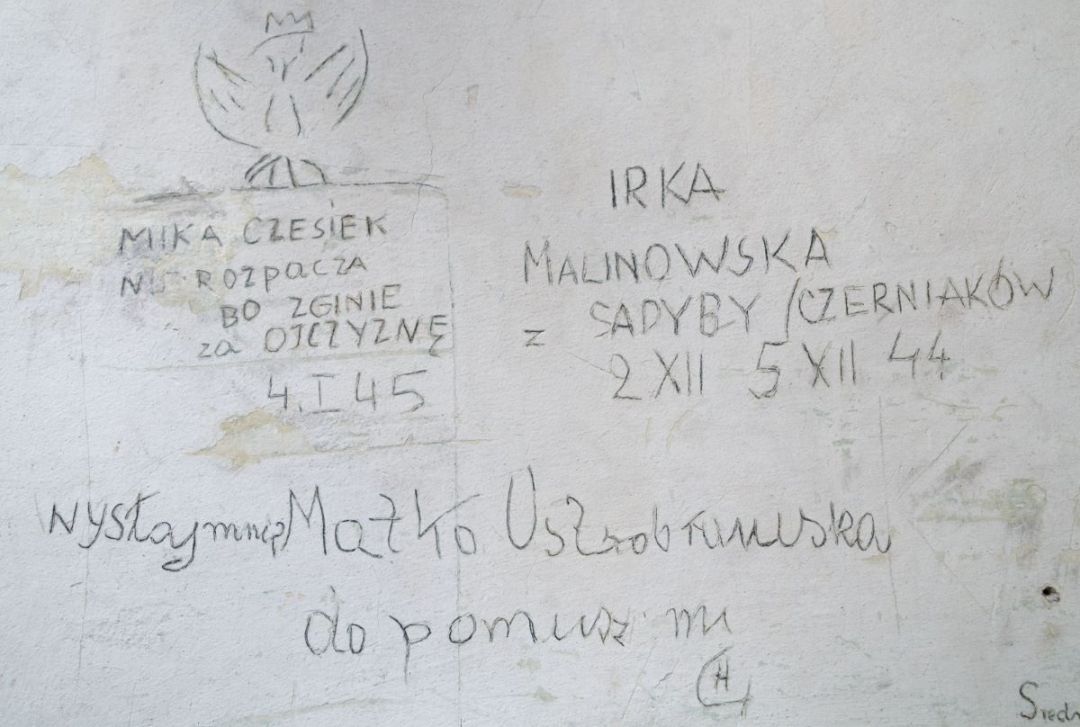 MIKA CZESIEK
NIE ROZPACZA
BO ZGINIE
za OJCZYZNĘ
4. I 45
IRKA
MALINOWSKA
z SADYBY / CZERNIAKÓW
2 XII 5 XII 44
wysłaj mnię Matko
do pomusz mi
H